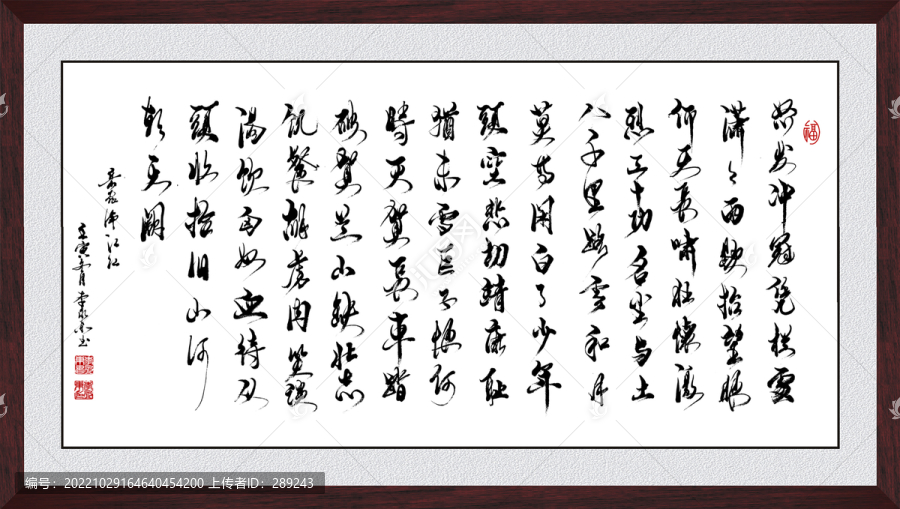 怒发冲冠凭栏處
潇々雨歇抬望眼
仰天長啸壮懷激
烈三十功名尘与土
八千里路雲和月
莫等闲白了少年
頭空悲切靖康耻
猶未雪臣子恨何
時灭驾長車踏
破贺兰山缺壮志
飢餐胡虏肉笑談
渴饮匈奴血待从
頭收拾旧山河
朝天阙
岳飞满江红
壬寅
福
编号：20221029164640454200 上传者ID：289243